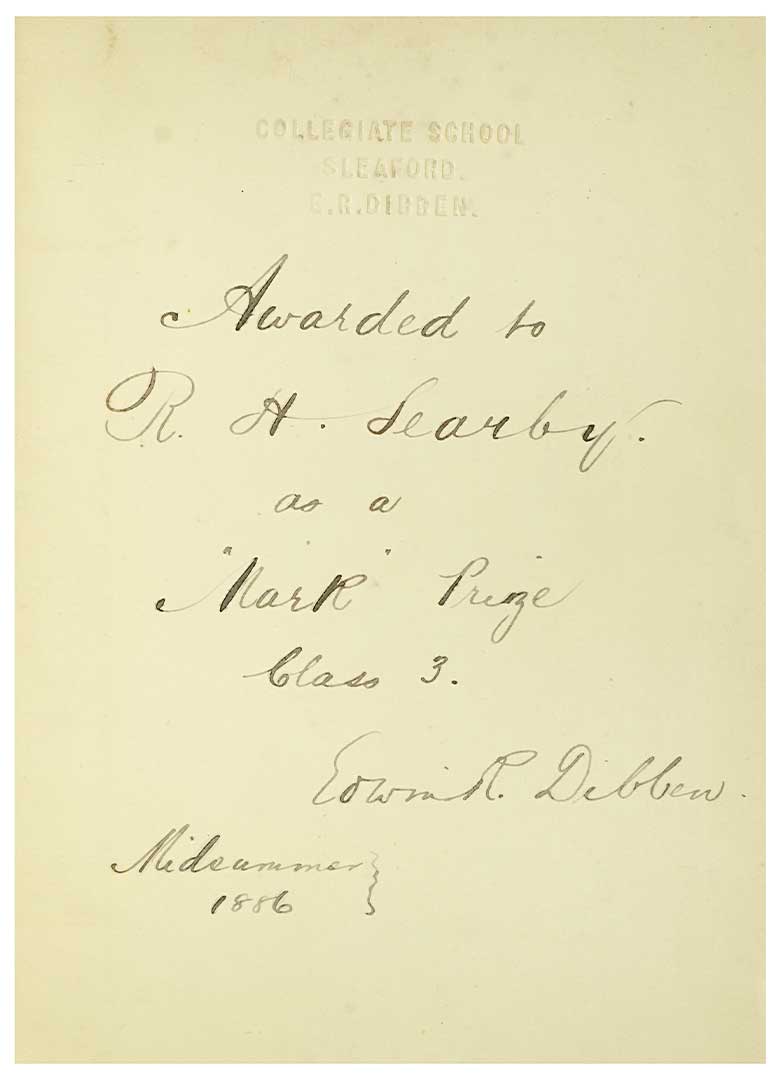 COLLEGIATE SCHOOL
SLEAFORD.
E.R.DIBBEN.
Awarded to
R. H. Searby.
as a
"Mark" Prize
Class 3.
Edwin R. Dibben.
Midsummer
1886